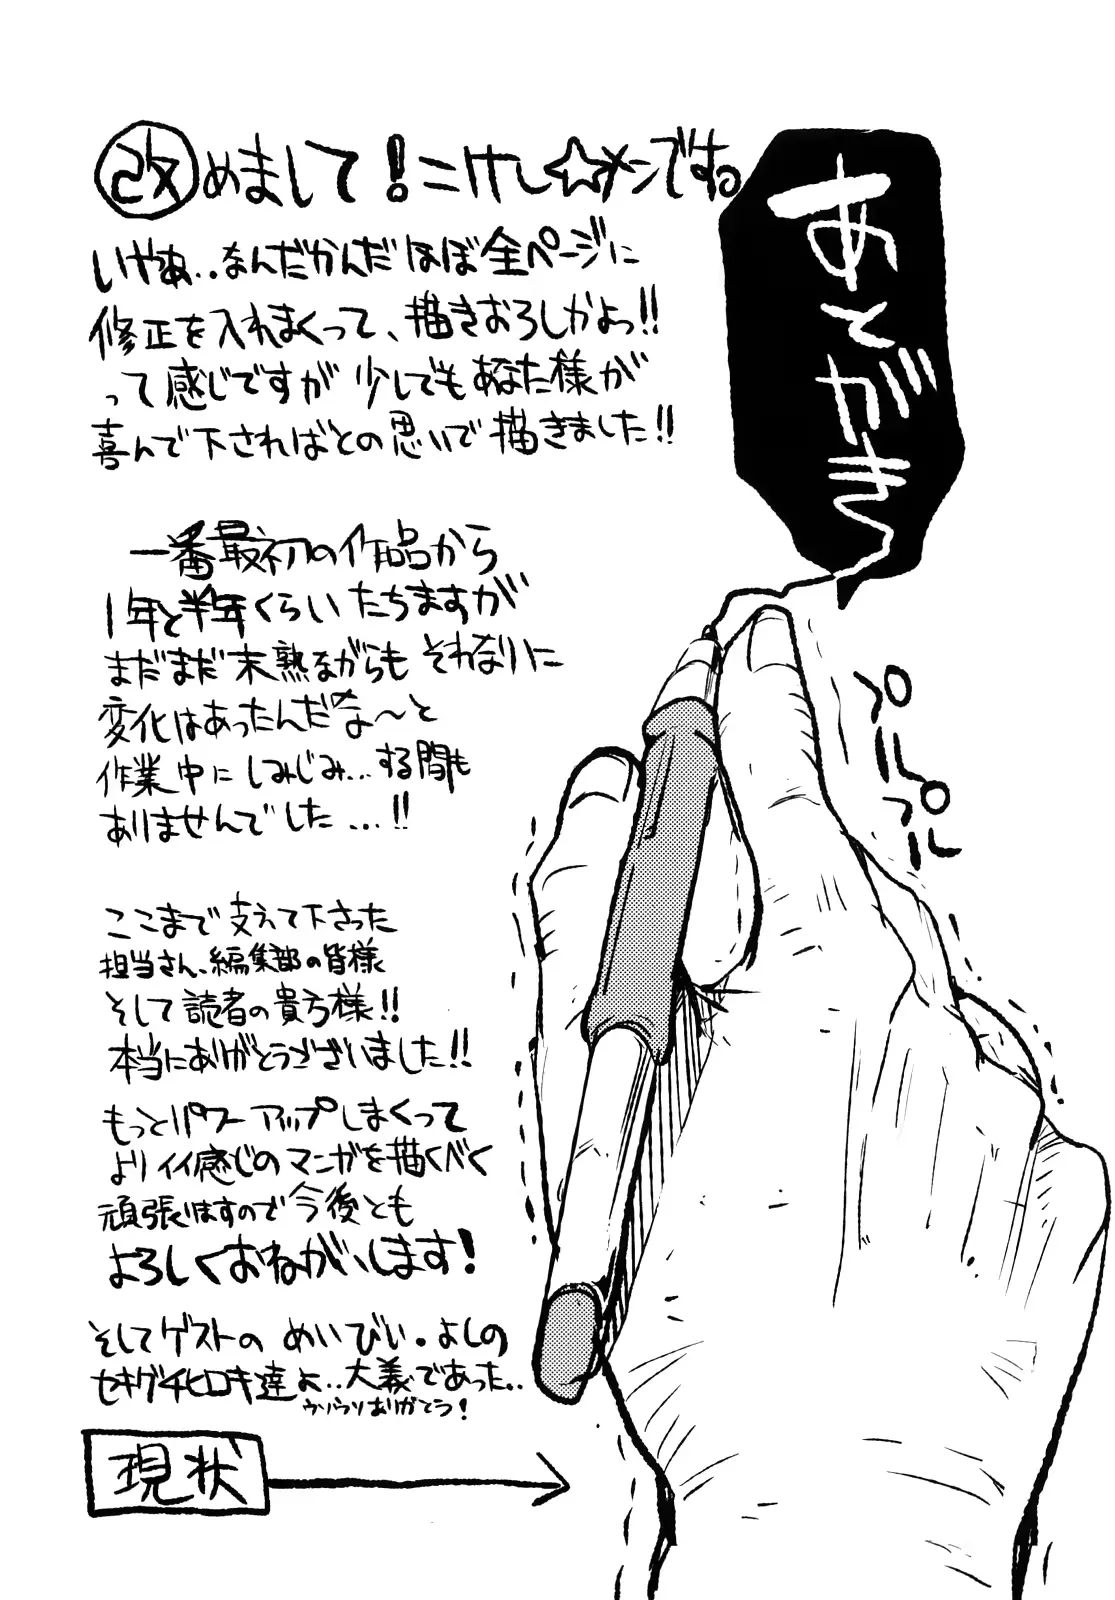 あとがき
改めまして！こけし☆メンです。
いやぁ..なんだかんだほぼ全ページに
修正を入れまくって、描きおろしかよっ!!
って感じですが少しでもあなた様が
喜んで下さればとの思いで描きました!!
一番最初の作品から
1年と半年くらいたちますが
まだまだ未熟ながらもそれなりに
変化はあったんだなぁ～と
作業中にしみじみ...する間も
ありませんでした...!!
ここまで支えて下さった
担当さん、編集部の皆様
そして読者の貴方様!!
本当にありがとうございました!!
もっとパワーアップしまくって
よりイイ感じのマンガを描くべく
頑張りますので今後とも
よろしくおねがいします！
そしてゲストのめいびい・よしの
セキグチヒロキ達よ..大義であった..
ウソウソありがとう！
現状
プルプル